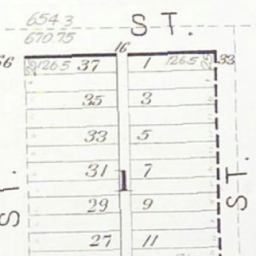 6543
670.75
ST.
16
126.5 37 1 126.5 33
35 3
33 5
31 7
29 9
27 11
ST.
ST.